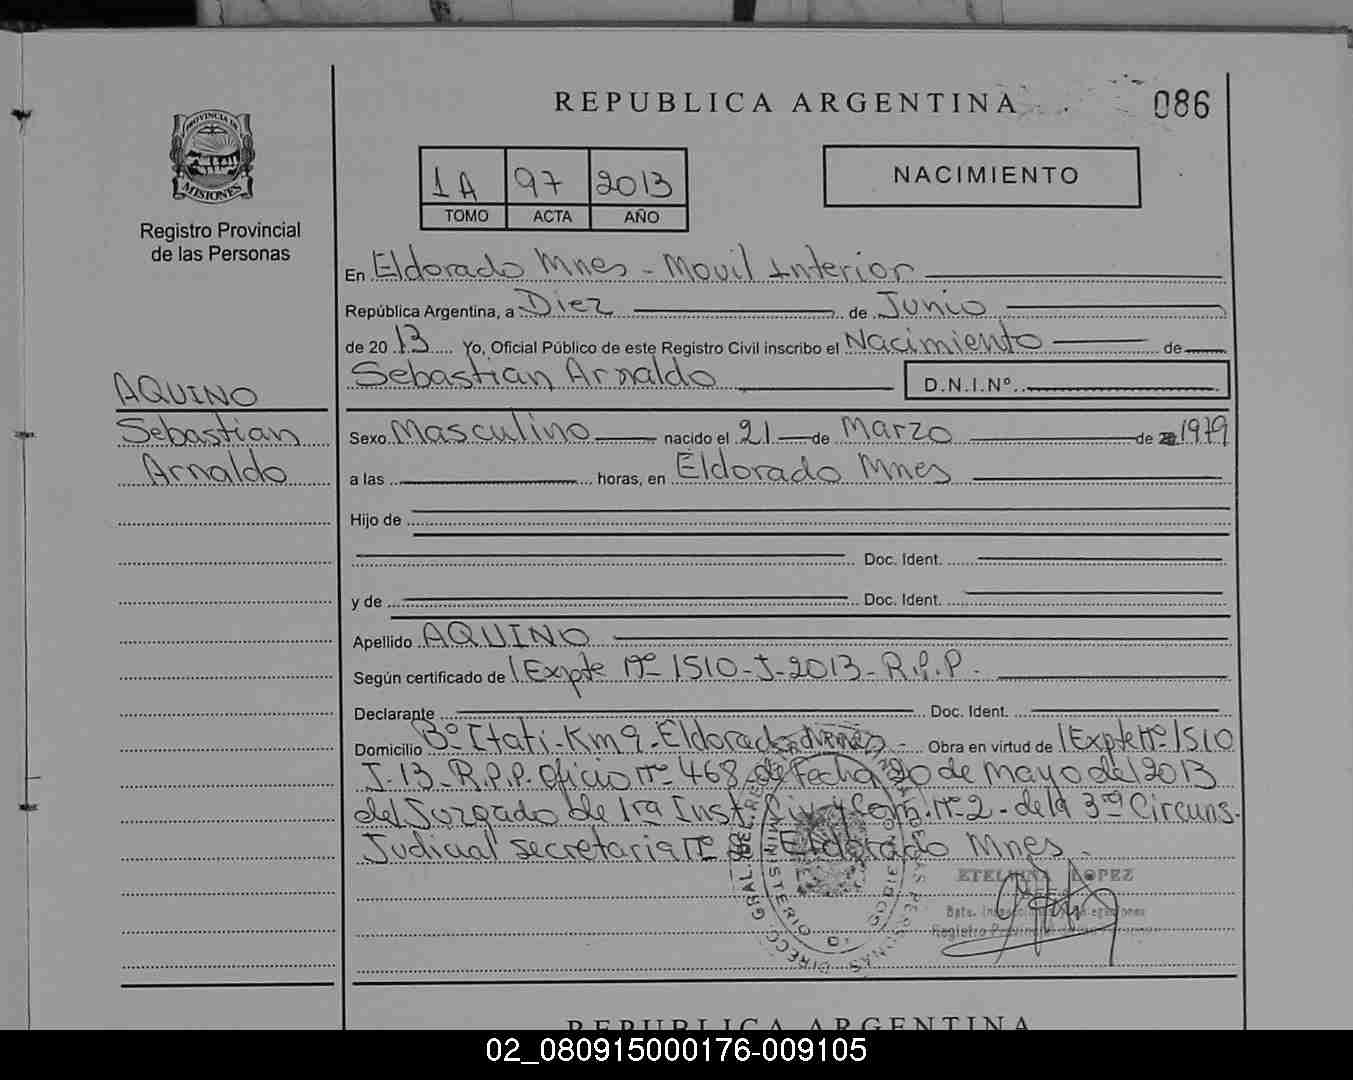 REPUBLICA ARGENTINA
086
PROVINCIA DE
MISIONES
Registro Provincial
de las Personas
1A 97 2013
TOMO ACTA AÑO
NACIMIENTO
En Eldorado Mnes - Movil Interior
República Argentina, a Diez de Junio
de 20 13 Yo, Oficial Público de este Registro Civil inscribo el Nacimiento de
Sebastian Arnaldo D.N.I.Nº
AQUINO
Sebastian
Arnaldo
Sexo Masculino nacido el 21 de Marzo de 1979
a las horas, en Eldorado Mnes
Hijo de
Doc. Ident.
y de Doc. Ident.
Apellido AQUINO
Según certificado de Expte Nº 1510-J-2013-R.P.P.
Declarante Doc. Ident.
Domicilio Bº Itati-Km 9-Eldorado Mnes - Obra en virtud de Expte Nº 1510
J-13-R.P.P. oficio Nº 468 de Fecha 20 de Mayo del 2013
del Juzgado de 1ra Inst. Civ y Com. Nº 2 - de la 3ra Circuns.
Judicial secretaria Nº Eldorado Mnes.
ETELVINA LOPEZ
REPUBLICA ARGENTINA
02_080915000176-009105